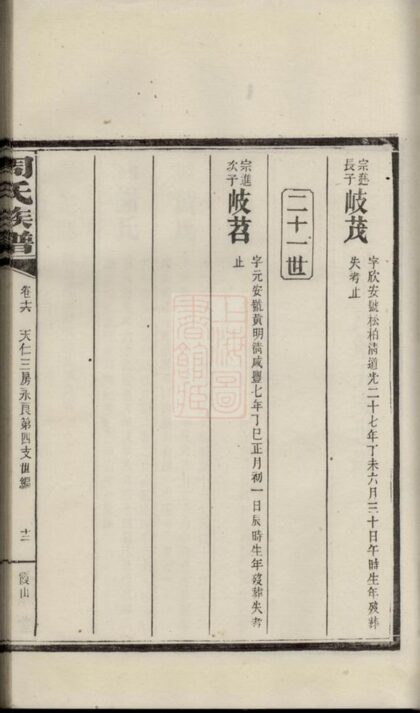 宗進長子
岐茂
字欣安號松柏清道光二十七年丁未六月三十日午時生年歿葬
失考止
二十一世
宗進次子
岐苕
字元安號黃明清咸豐七年丁巳正月初一日辰時生年歿葬失考
止
上海圖書館藏
周氏族譜
卷十六 天仁三房永良第四支世編
十二
霞山